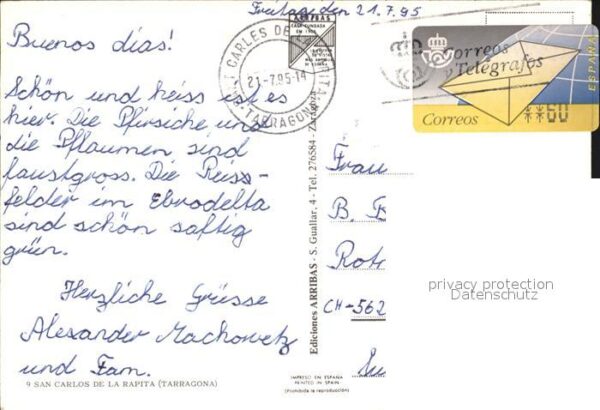 Freitag den 21.7.95
Buenos dias!
Schön und heiss ist es
hier. Die Pfirsiche, und
die Pflaumen sind
faustgross. Die Reis-
felder im Ebrodelta
sind schön saftig
grün.
Herzliche Grüsse
Alexander Machowetz
und Fam.
9 SAN CARLOS DE LA RAPITA (TARRAGONA)
Ediciones ARRIBAS - S. Guallar, 4 - Tel. 276584 - Zaragoza
ARRIBAS
CASA FUNDADA
EN
CARLES DE
21-7.95-14
TARRAGONA
Correos
y Telégrafos
ESPAÑA
Correos
**60
Frau
B. B
Rote
CH-562
privacy protection
Datenschutz
IMPRESO EN ESPAÑA
PRINTED IN SPAIN
(Prohibida la reproducción)